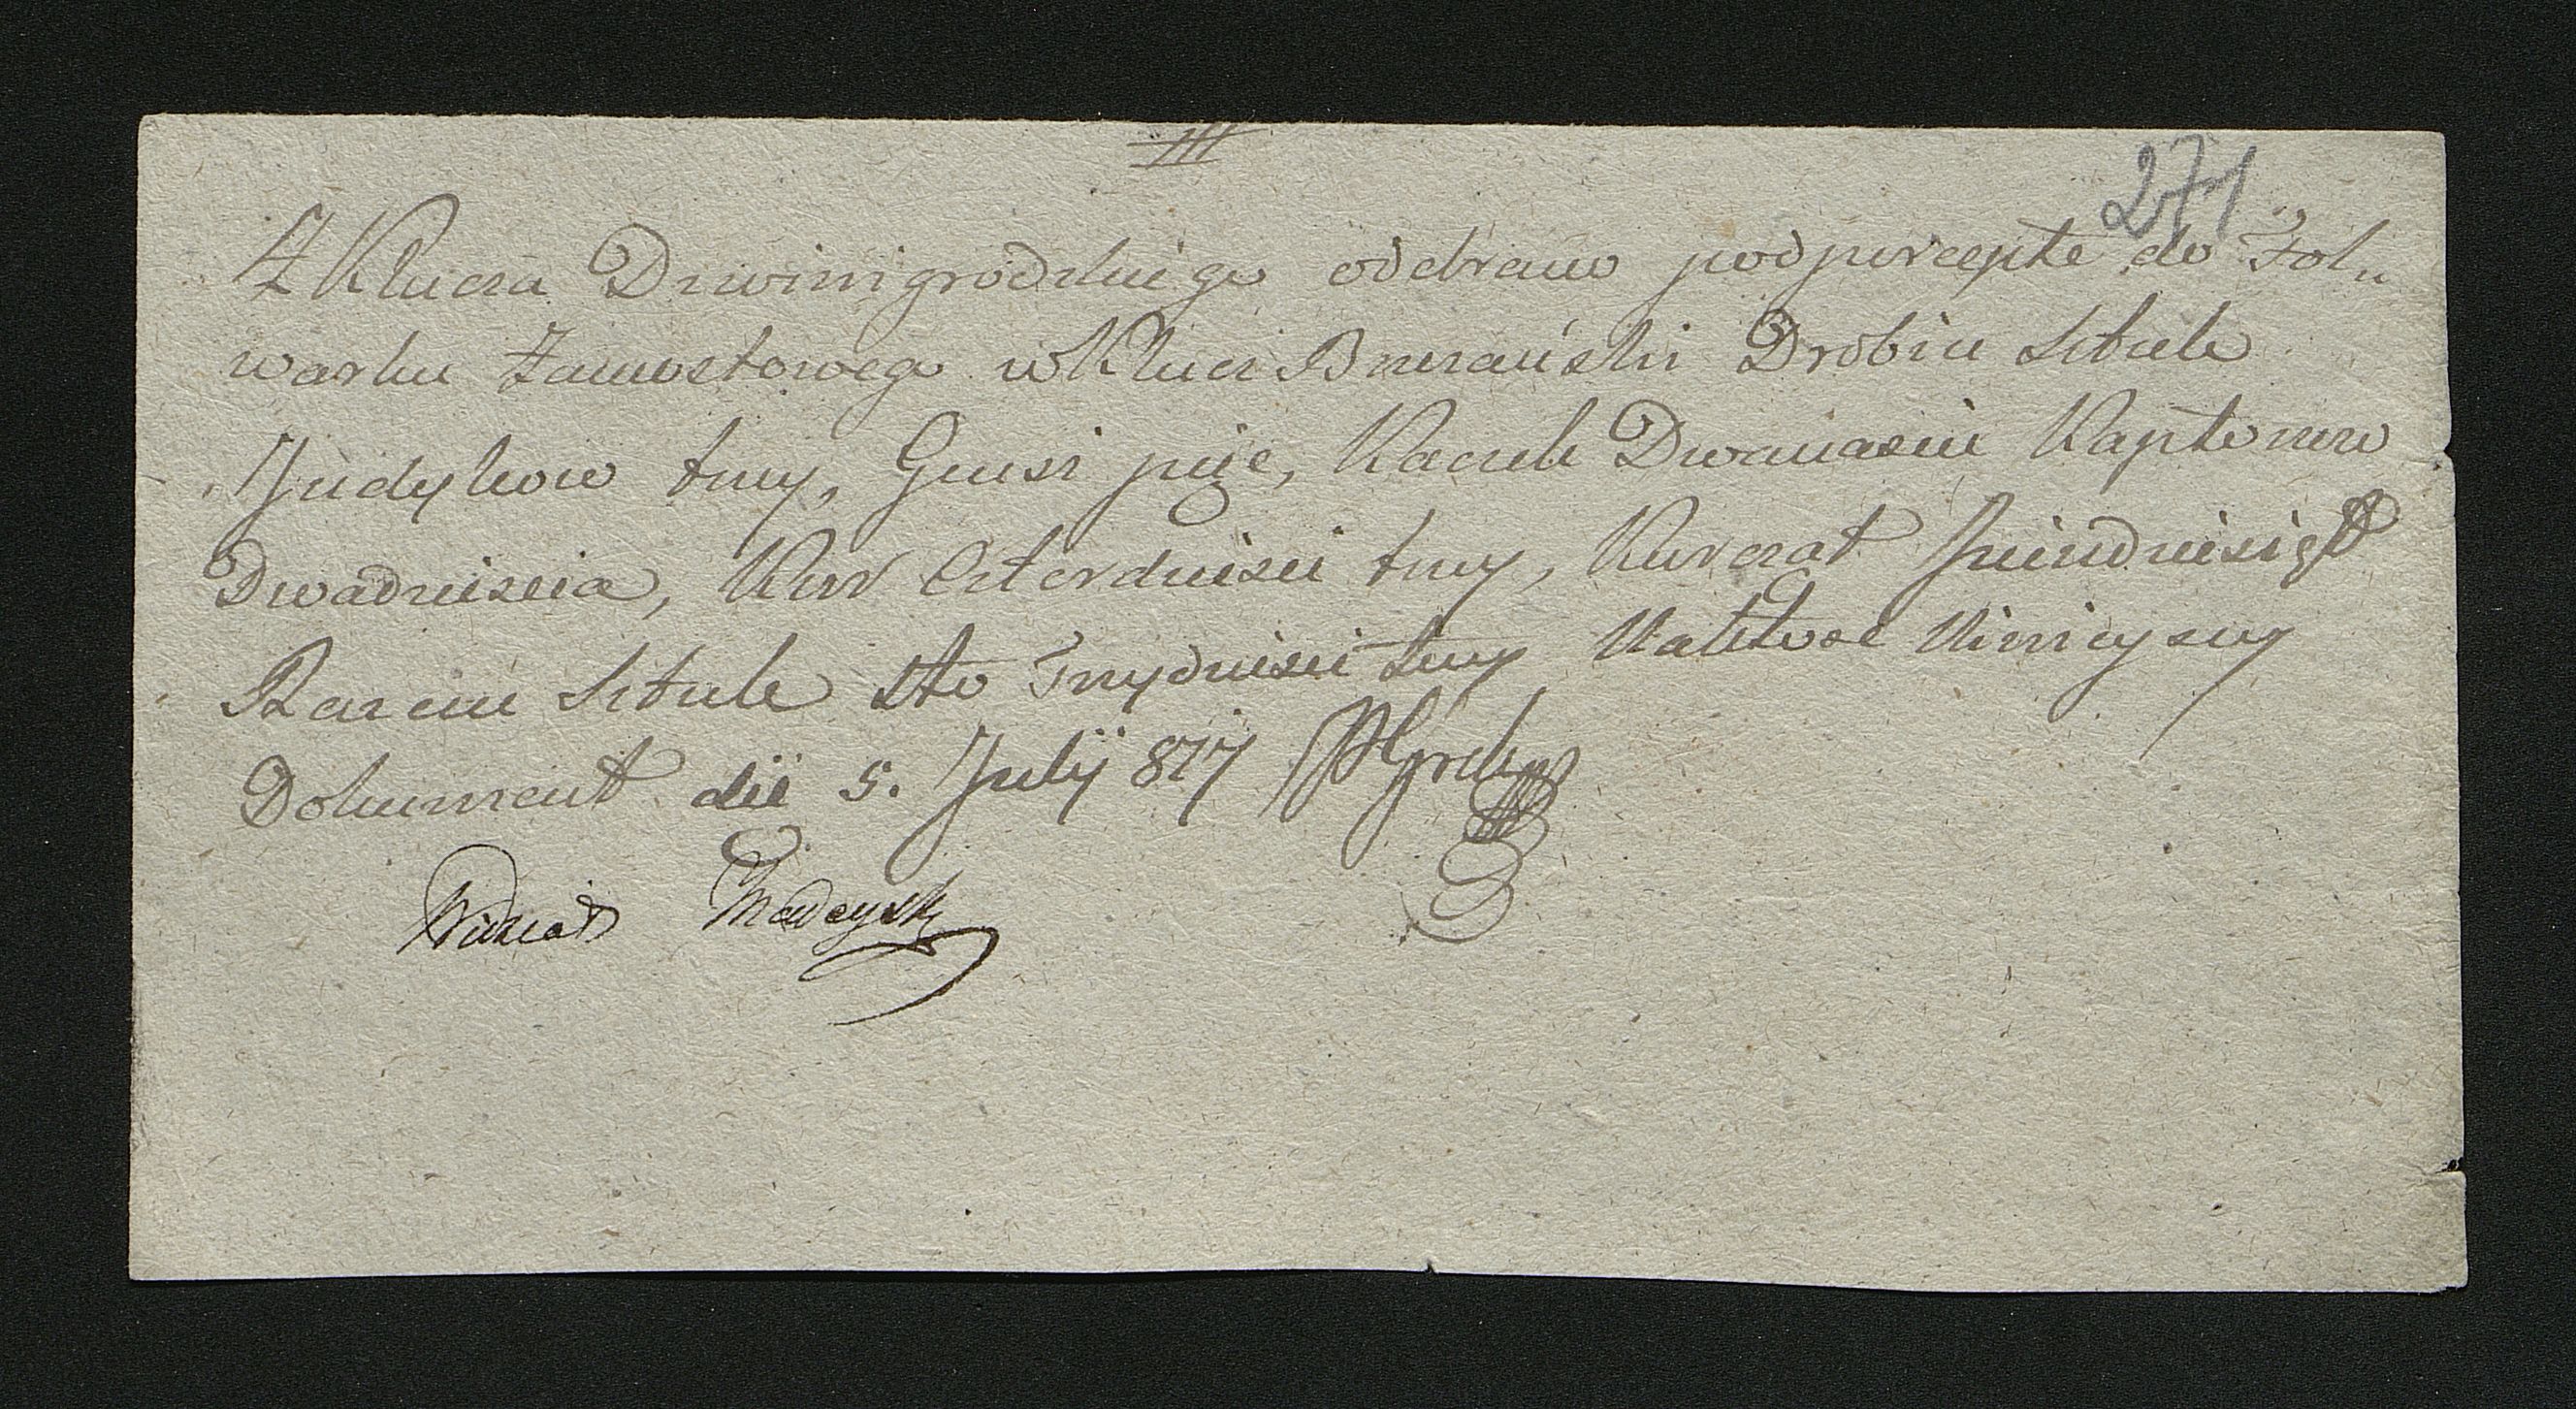 III
271
Z Klucza Dzwinigrodzkiego odebrano pod percepte do Fol„
warku Zamostowego w Kluczi Brzezański Drobiu Sztuk
Jndykow trzy, Gensi pięc, Kaczek Dwanascie Kapłonow
Dwadziescia, Kur Czterdziesci trzy, Kurcząt piendziesiąt
Razem Sztuk sto Trzydziesci trzy Na to ze Ninieyszy
Dokument die 5. Julij 817